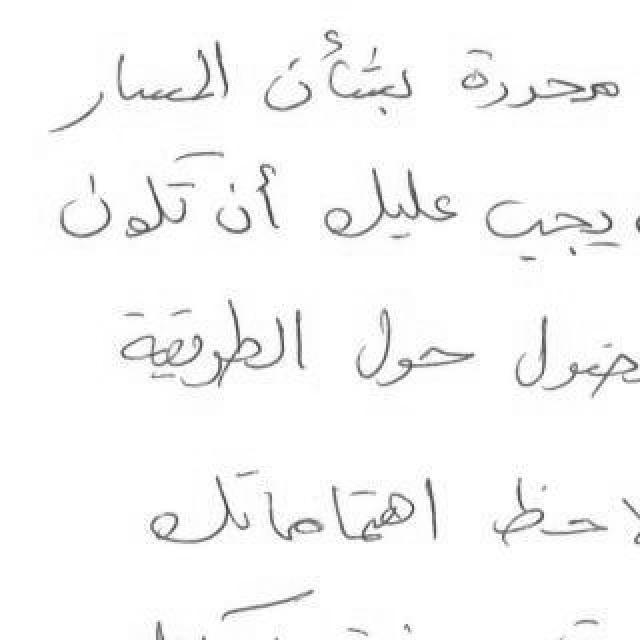 محددة بشأن المسار
يجب عليك أن تكون
حول الطريقة
لاحظ اهتماماتك